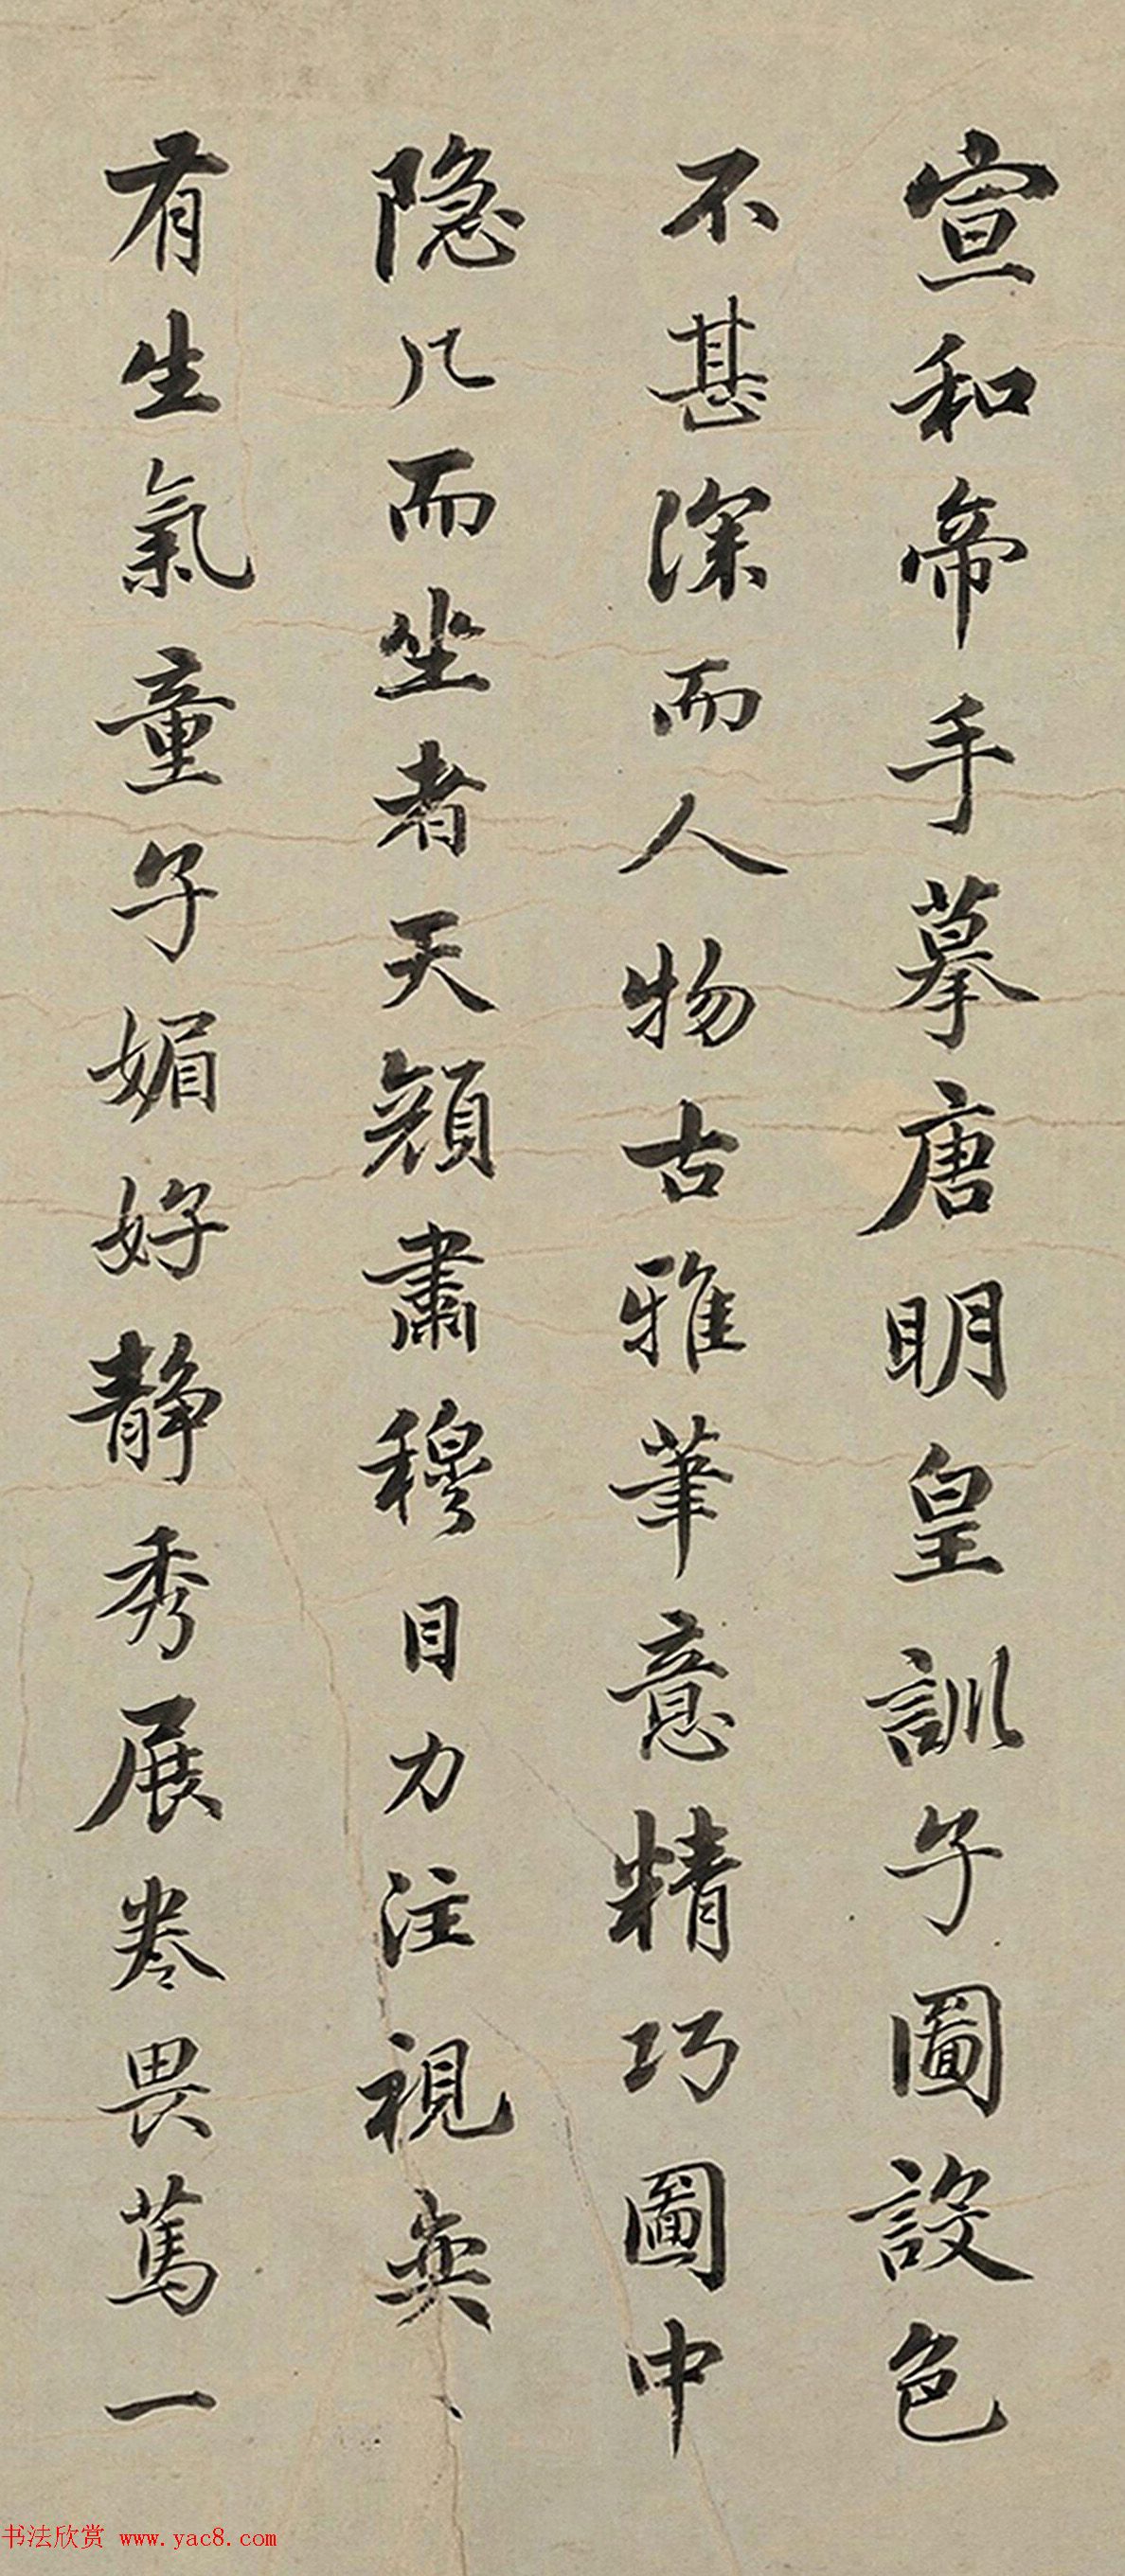 宣和帝手摹唐明皇訓子圖設色
不甚深而人物古雅筆意精巧圖中
隐几而坐者天顔肅穆目力注視奕〻
有生氣童子媚好静秀展卷畏荩一
书法欣赏 www.yac8.com